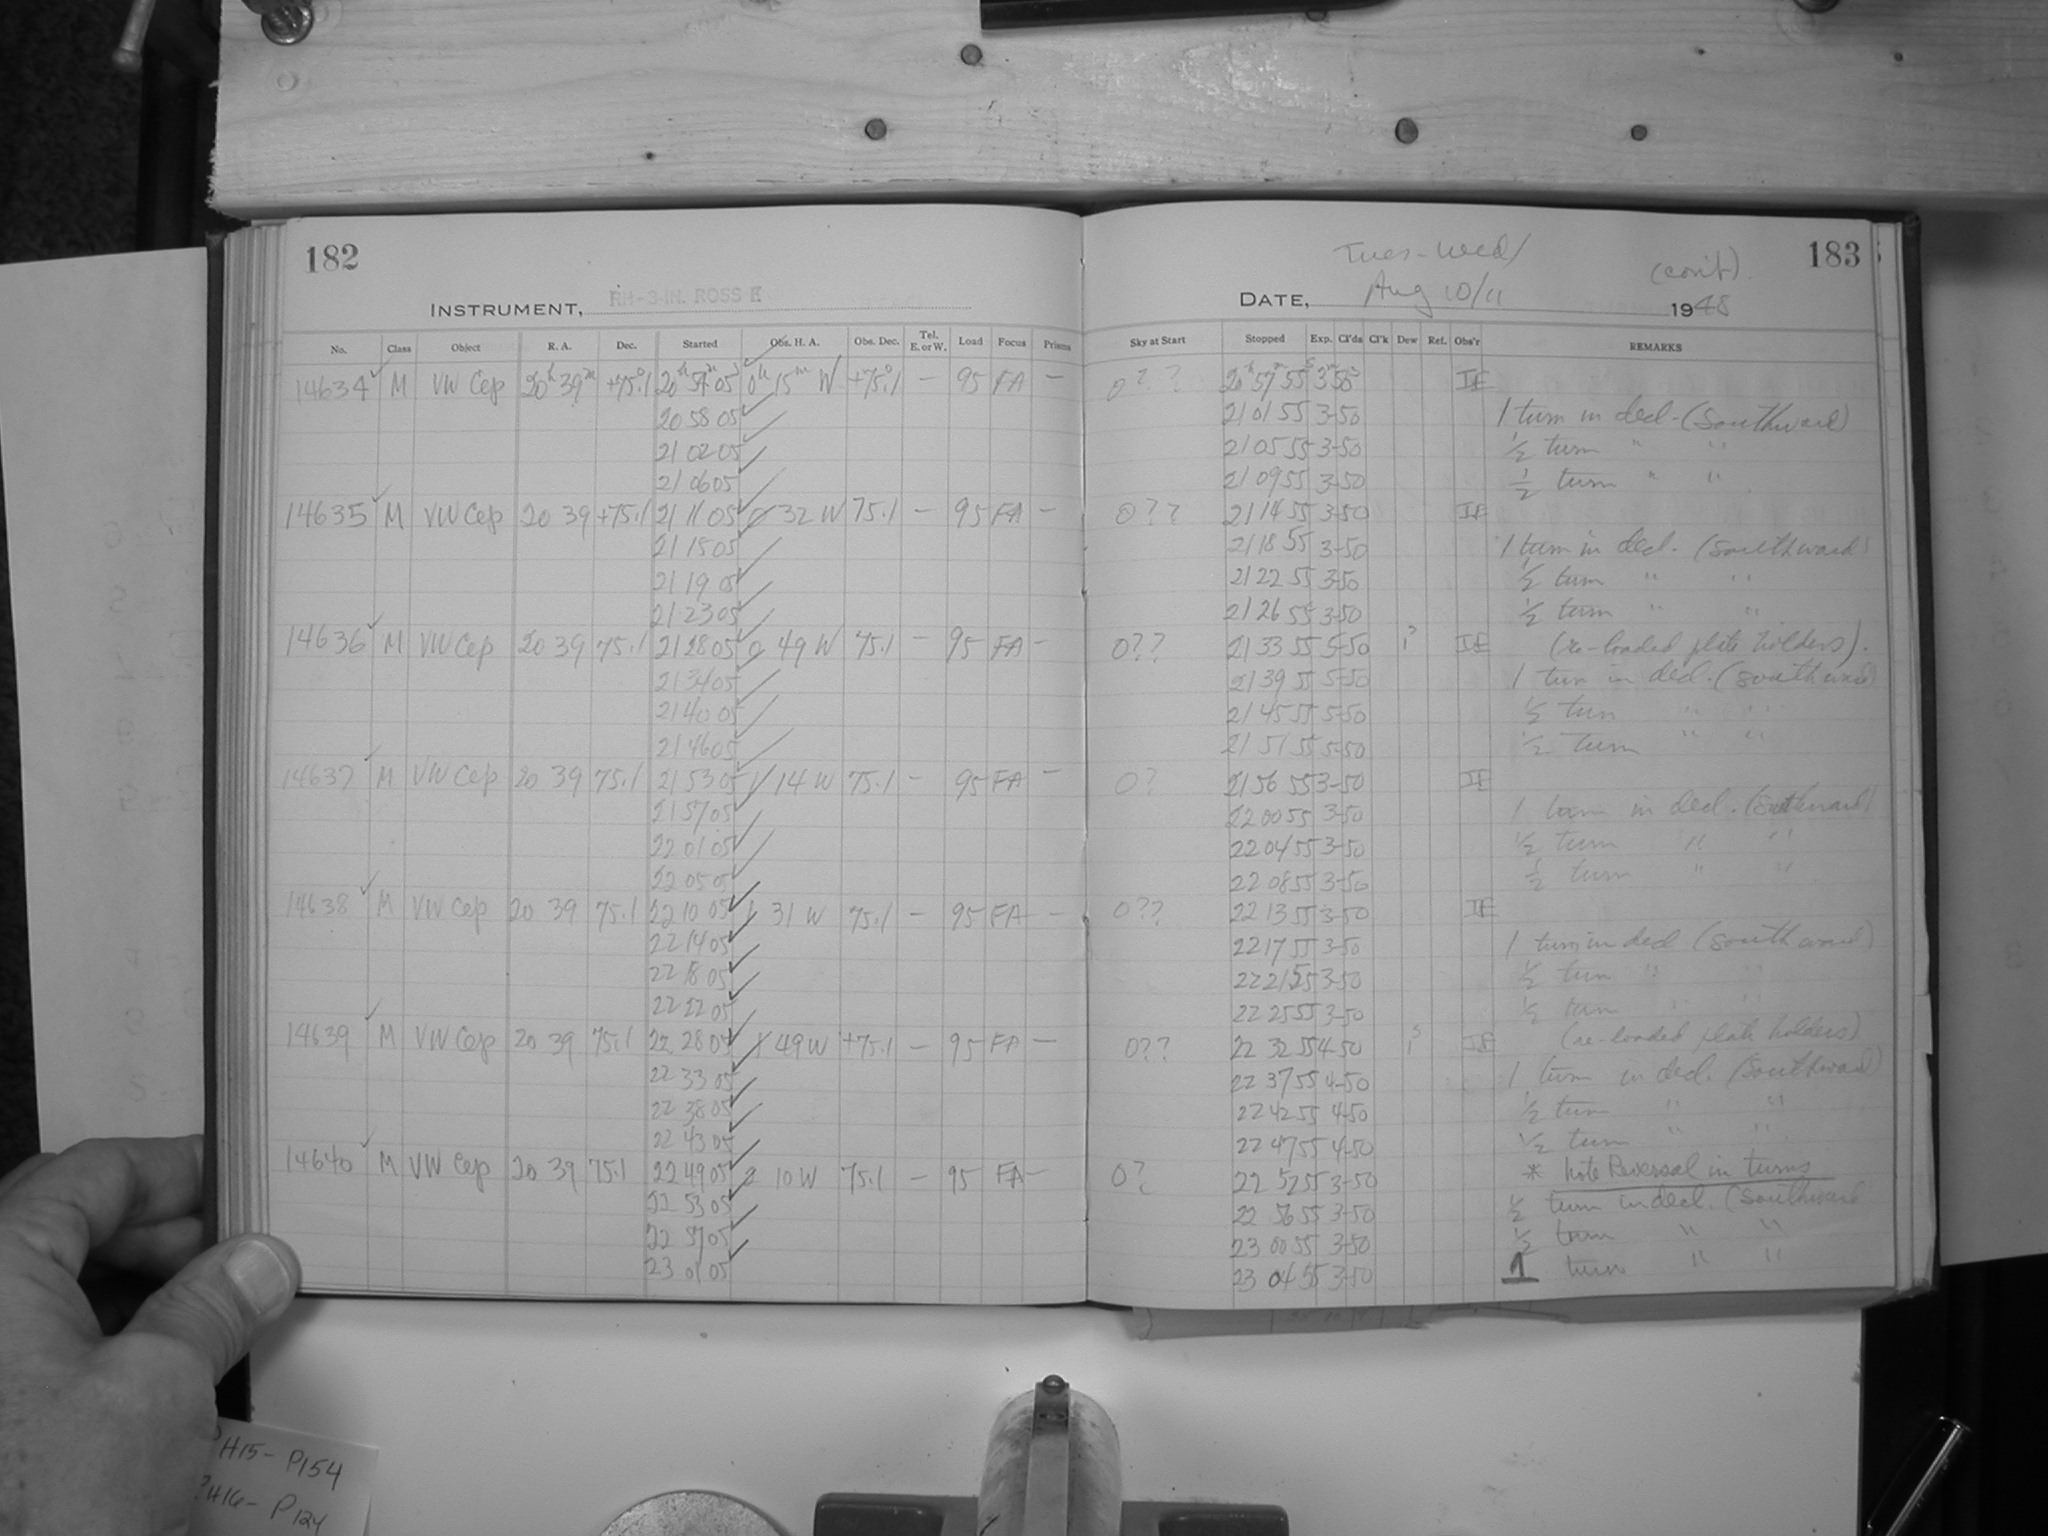 182
INSTRUMENT, RH-3-IN. ROSS
No. Class Object R. A. Dec. Started Obs. H. A. Obs. Dec. Tel. E. or W. Load Focus Prisms
14634 M VW Cep 20h 39m +75.1° 20h 54m 05s 0h 15m W +75.1° — 95 FA —
20 58 05
21 02 05
21 06 05
14635 M VW Cep 20 39 +75.1 21 11 05 0 32 W 75.1 — 95 FA —
21 15 05
21 19 05
21 23 05
14636 M VW Cep 20 39 75.1 21 28 05 0 49 W 75.1 — 95 FA —
21 34 05
21 40 05
21 46 05
14637 M VW Cep 20 39 75.1 21 53 05 1 14 W 75.1 — 95 FA —
21 57 05
22 01 05
22 05 05
14638 M VW Cep 20 39 75.1 22 10 05 1 31 W 75.1 — 95 FA —
22 14 05
22 18 05
22 22 05
14639 M VW Cep 20 39 75.1 22 28 05 1 49 W +75.1 — 95 FA —
22 33 05
22 38 05
22 43 05
14640 M VW Cep 20 39 75.1 22 49 05 2 10 W 75.1 — 95 FA —
22 53 05
22 57 05
23 01 05
183
Tues-Wed/
(con't).
DATE, Aug 10/11 1948
Sky at Start Stopped Exp. Cl'ds Cl'k Dew Ref. Obs'r REMARKS
0?? 20h 57m 55s 3m 50s IE
21 01 55 3-50 1 turn in decl. (Southward)
21 05 55 3-50 ½ turn " "
21 09 55 3-50 ½ turn " "
0?? 21 14 55 3-50 IE
21 18 55 3-50 1 turn in decl. (southward)
21 22 55 3-50 ½ turn " "
21 26 55 3-50 ½ turn " "
0?? 21 33 55 5-50 IE (re-loaded plate holders).
21 39 55 5-50 1 turn in decl. (southward)
21 45 55 5-50 ½ turn " "
21 51 55 5-50 ½ turn " "
0? 21 56 55 3-50 IE
22 00 55 3-50 1 turn in decl. (southward)
22 04 55 3-50 ½ turn " "
22 08 55 3-50 ½ turn " "
0?? 22 13 55 3-50 IE
22 17 55 3-50 1 turn in decl (southward)
22 21 55 3-50 ½ turn "
22 25 55 3-50 ½ turn " "
0?? 22 32 55 4-50 IE (re-loaded plate holders)
22 37 55 4-50 1 turn in decl. (Southward)
22 42 55 4-50 ½ turn " "
22 47 55 4-50 ½ turn " "
0? 22 52 55 3-50 * Note Reversal in turns
22 56 55 3-50 ½ turn in decl. (Southward
23 00 55 3-50 ½ turn " "
23 04 55 3-50 1 turn " "
H15- P154
H16- P124